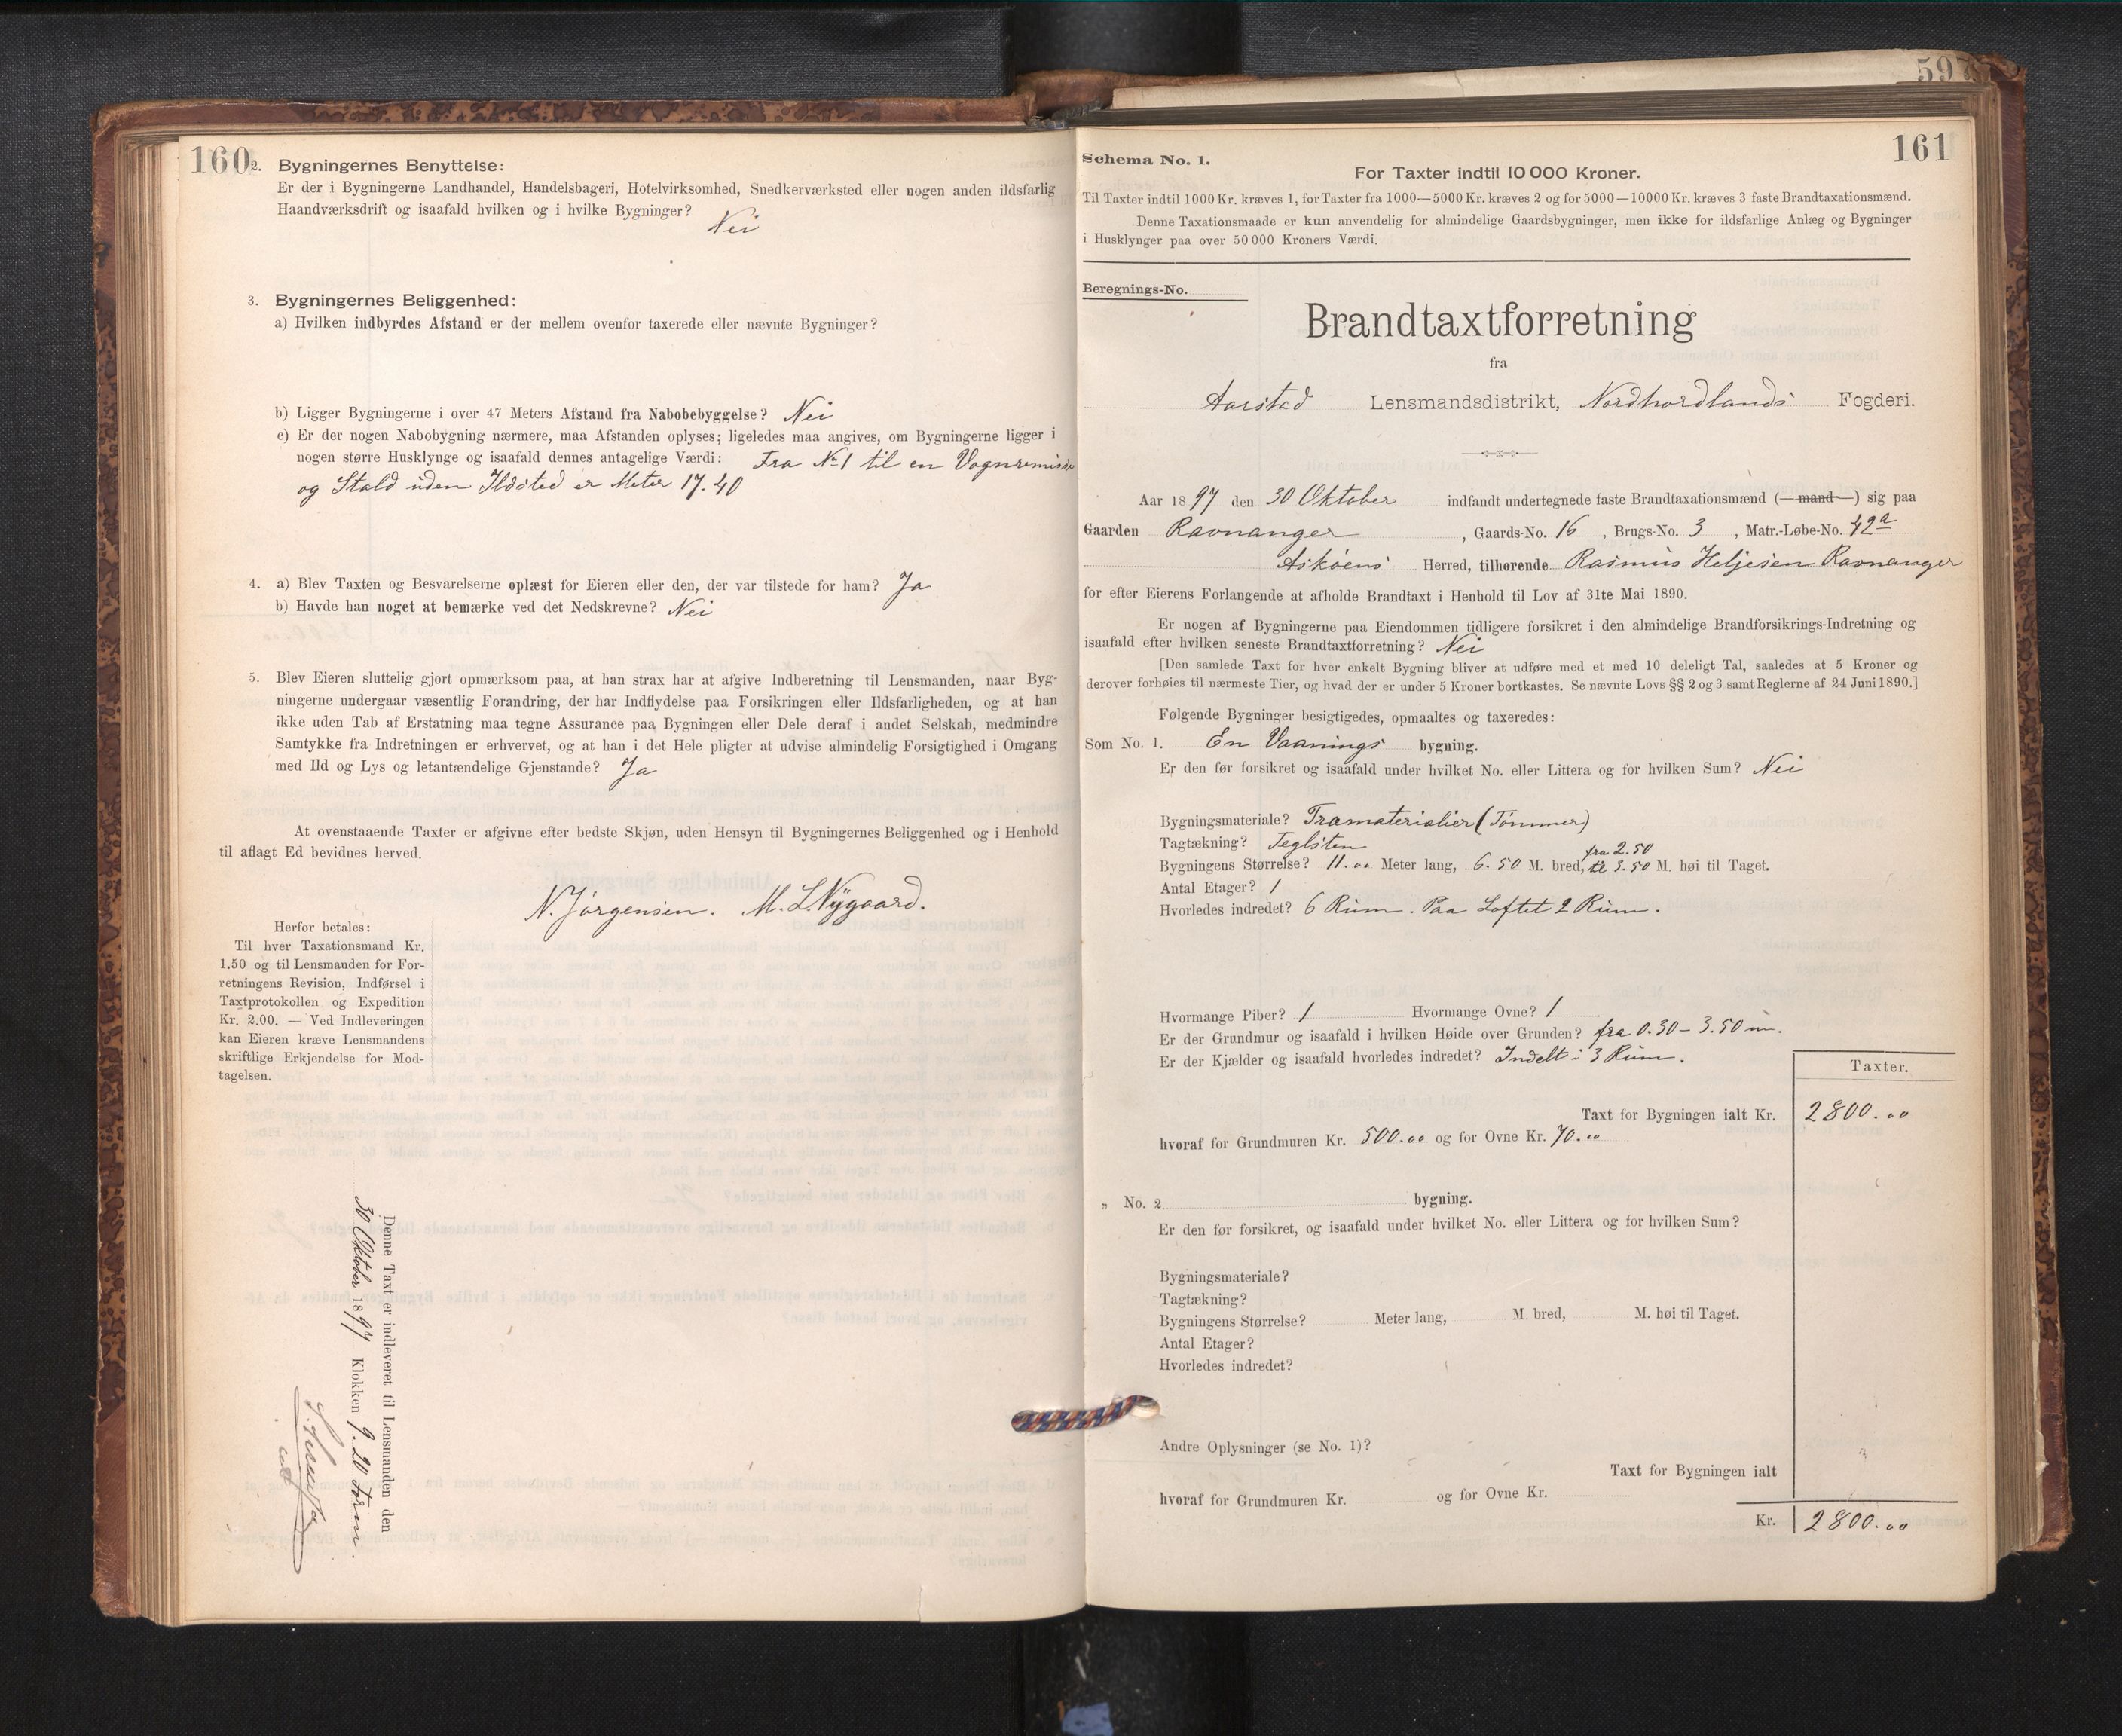 160
2. Bygningernes Benyttelse:
Er der i Bygningerne Landhandel, Handelsbageri, Hotelvirksomhed, Snedkerværksted eller nogen anden ildsfarlig
Haandværksdrift og isaafald hvilken og i hvilke Bygninger?
Nei
3. Bygningernes Beliggenhed:
a) Hvilken indbyrdes Afstand er der mellem ovenfor taxerede eller nævnte Bygninger?
b) Ligger Bygningerne i over 47 Meters Afstand fra Nabobebyggelse? Nei
c) Er der nogen Nabobygning nærmere, maa Afstanden oplyses; ligeledes maa angives, om Bygningerne ligger i
nogen større Husklynge og isaafald dennes antagelige Værdi: Fra No 1 til en Vognremisse
og Stald uden Ildsted er Meter 17.40
4. a) Blev Taxten og Besvarelserne oplæst for Eieren eller den, der var tilstede for ham? Ja
b) Havde han noget at bemærke ved det Nedskrevne? Nei
5. Blev Eieren sluttelig gjort opmærksom paa, at han strax har at afgive Indberetning til Lensmanden, naar Byg-
ningerne undergaar væsentlig Forandring, der har Indflydelse paa Forsikringen eller Ildsfarligheden, og at han
ikke uden Tab af Erstatning maa tegne Assurance paa Bygningen eller Dele deraf i andet Selskab, medmindre
Samtykke fra Indretningen er erhvervet, og at han i det Hele pligter at udvise almindelig Forsigtighed i Omgang
med Ild og Lys og letantændelige Gjenstande? Ja
At ovenstaaende Taxter er afgivne efter bedste Skjøn, uden Hensyn til Bygningernes Beliggenhed og i Henhold
til aflagt Ed bevidnes herved.
N. Jørgensen. M. L. Nygaard.
Herfor betales:
Til hver Taxationsmand Kr.
1.50 og til Lensmanden for For-
retningens Revision, Indførsel i
Taxtprotokollen og Expedition
Kr. 2.00. — Ved Indleveringen
kan Eieren kræve Lensmandens
skriftlige Erkjendelse for Mod-
tagelsen.
Denne Taxt er indleveret til Lensmanden den
30 Oktober 1897 Klokken 9.20 Form.
597
161
Schema No. 1.
For Taxter indtil 10 000 Kroner.
Til Taxter indtil 1000 Kr. kræves 1, for Taxter fra 1000—5000 Kr. kræves 2 og for 5000—10000 Kr. kræves 3 faste Brandtaxationsmænd.
Denne Taxationsmaade er kun anvendelig for almindelige Gaardsbygninger, men ikke for ildsfarlige Anlæg og Bygninger
i Husklynger paa over 50 000 Kroners Værdi.
Beregnings-No.
Brandtaxtforretning
fra
Aarstad Lensmandsdistrikt, Nordhordlands Fogderi.
Aar 1897 den 30 Oktober indfandt undertegnede faste Brandtaxationsmænd (—mand—) sig paa
Gaarden Ravnanger, Gaards-No. 16, Brugs-No. 3, Matr.-Løbe-No. 42a
Askøens Herred, tilhørende Rasmus Heljesen Ravnanger
for efter Eierens Forlangende at afholde Brandtaxt i Henhold til Lov af 31te Mai 1890.
Er nogen af Bygningerne paa Eiendommen tidligere forsikret i den almindelige Brandforsikrings-Indretning og
isaafald efter hvilken seneste Brandtaxtforretning? Nei
[Den samlede Taxt for hver enkelt Bygning bliver at udføre med et med 10 deleligt Tal, saaledes at 5 Kroner og
derover forhøies til nærmeste Tier, og hvad der er under 5 Kroner bortkastes. Se nævnte Lovs §§ 2 og 3 samt Reglerne af 24 Juni 1890.]
Følgende Bygninger besigtigedes, opmaaltes og taxeredes:
Som No. 1. En Vaanings bygning.
Er den før forsikret og isaafald under hvilket No. eller Littera og for hvilken Sum? Nei
Bygningsmateriale? Træmaterialier (Tømmer)
Tagtækning? Teglsten
Bygningens Størrelse? 11.00 Meter lang, 6.50 M. bred, fra 2.50 til 3.50 M. høi til Taget.
Antal Etager? 1
Hvorledes indredet? 6 Rum. Paa Loftet 2 Rum.
Hvormange Piber? 1 Hvormange Ovne? 1
Er der Grundmur og isaafald i hvilken Høide over Grunden? fra 0.30 - 3.50 m.
Er der Kjælder og isaafald hvorledes indredet? Indelt i 3 Rum.
Taxter.
Taxt for Bygningen ialt Kr. 2800.00
hvoraf for Grundmuren Kr. 500.00 og for Ovne Kr. 70.00
„ No. 2 bygning.
Er den før forsikret, og isaafald under hvilket No. eller Littera og for hvilken Sum?
Bygningsmateriale?
Tagtækning?
Bygningens Størrelse? Meter lang, M. bred, M. høi til Taget.
Antal Etager?
Hvorledes indredet?
Andre Oplysninger (se No. 1)?
Taxt for Bygningen ialt
hvoraf for Grundmuren Kr. og for Ovne Kr.
Kr. 2800.00